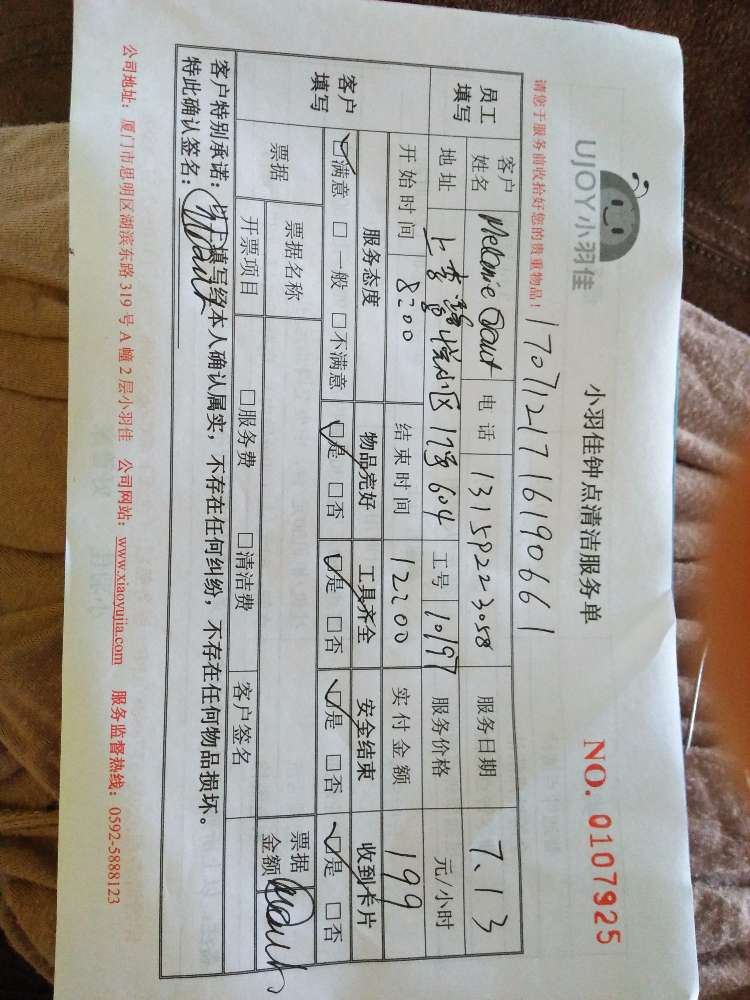 UJOY小羽佳
小羽佳钟点清洁服务单
NO. 0107925
请您于服务前收拾好您的贵重物品！
1707121716190661
员工填写
客户姓名 Melanie 电话 13159223058 服务日期 7.13
地址 小区17号604 工号 10197 服务价格 元/小时
开始时间 8:00 结束时间 12:00 实付金额 199
客户填写
服务态度 物品完好 工具齐全 安全结束 收到卡片
☑满意 □一般 □不满意 ☑是 □否 ☑是 □否 ☑是 □否 ☑是 □否
票据 票据名称 票据金额
开票项目 □服务费 □清洁费 客户签名
客户特别承诺：以上填写经本人确认属实，不存在任何纠纷，不存在任何物品损坏。
特此确认签名：
公司地址：厦门市思明区湖滨东路319号A幢2层小羽佳 公司网站：www.xiaoyujia.com 服务监督热线：0592-5888123